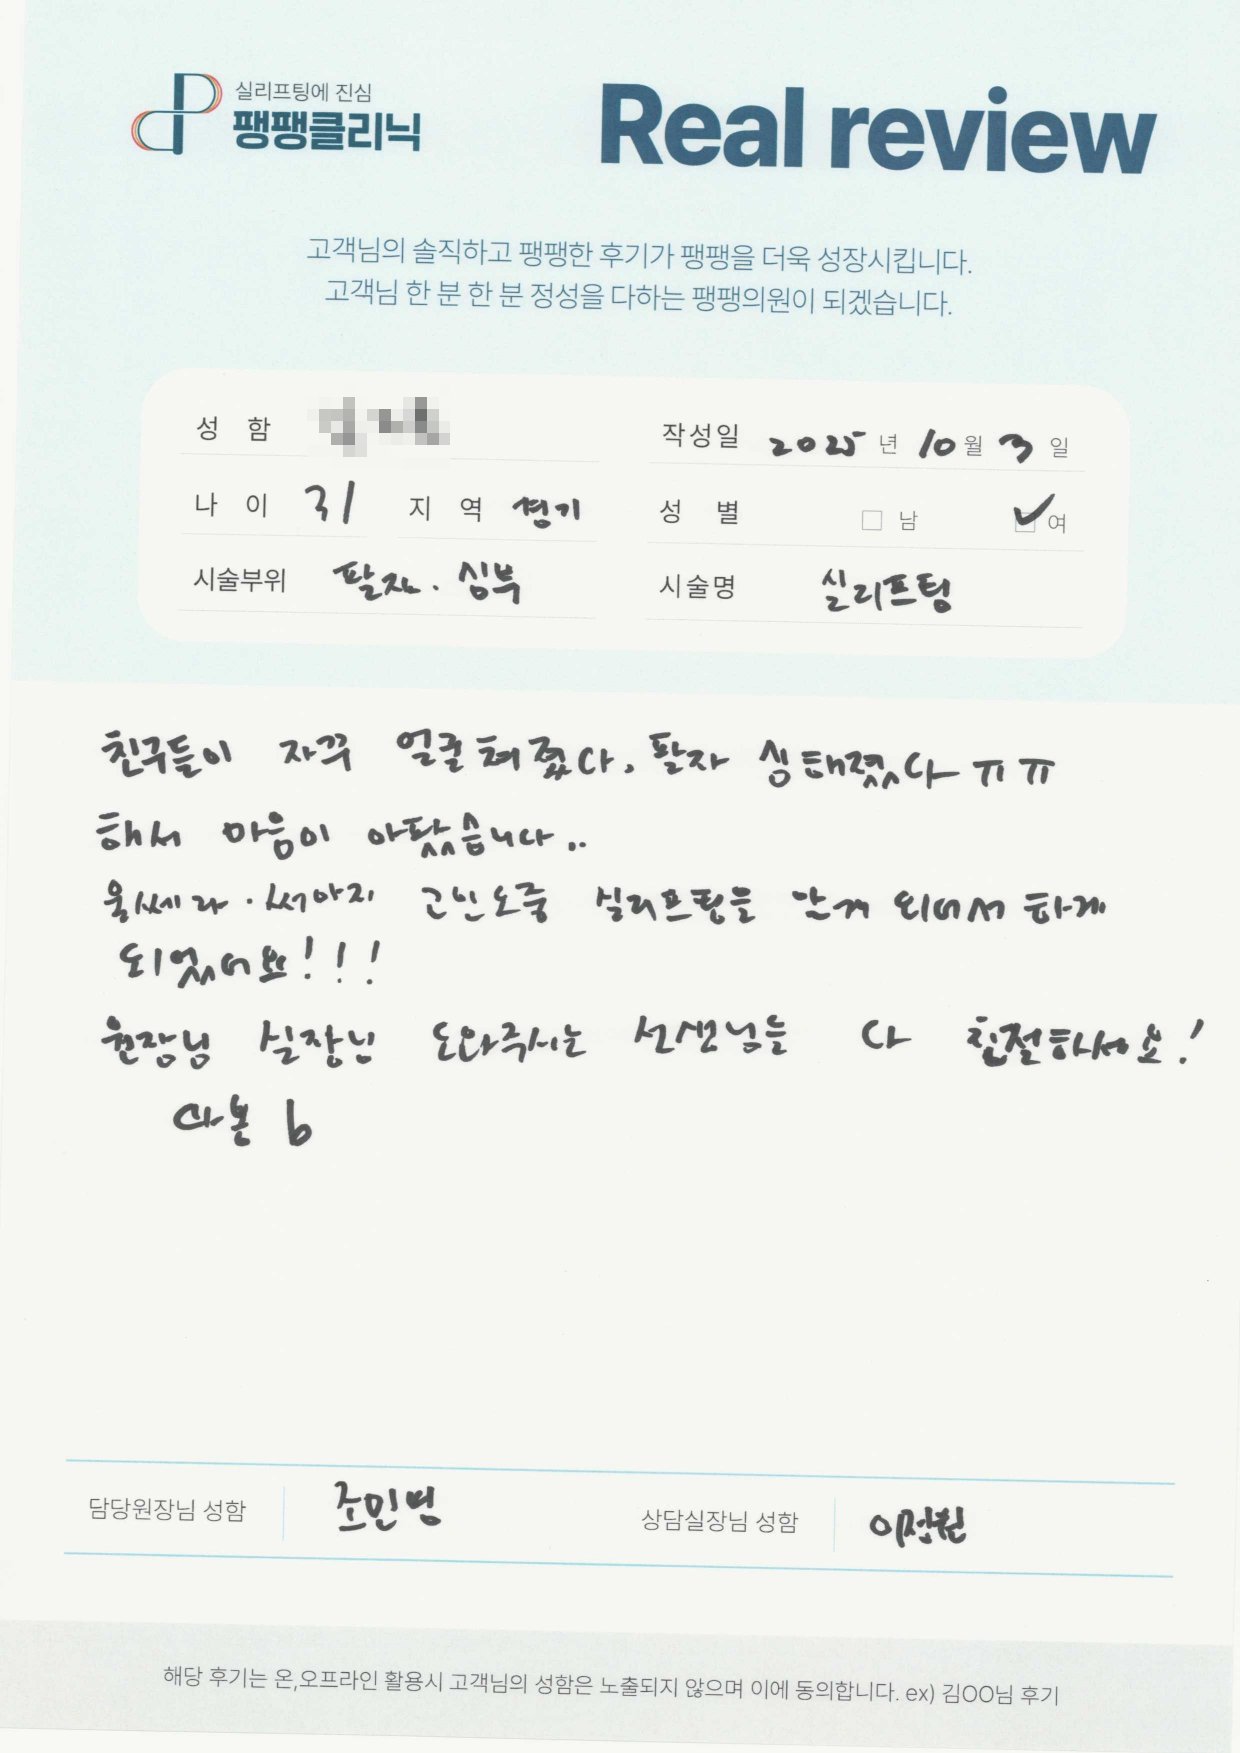 실리프팅에 진심
팽팽클리닉
Real review
고객님의 솔직하고 팽팽한 후기가 팽팽을 더욱 성장시킵니다.
고객님 한 분 한 분 정성을 다하는 팽팽의원이 되겠습니다.
성 함 작성일 2025 년 10 월 3 일
나 이 31 지 역 경기 성 별 남 여
시술부위 팔자. 심부 시술명 실리프팅
친구들이 자꾸 얼굴 쳐졌다, 팔자 심해졌다 ㅠㅠ
해서 마음이 아팠습니다..
울쎄라 · 써마지 고민도중 실리프팅을 알게 되어서 하게
되었어요!!!
원장님 실장님 도와주시는 선생님들 다 친절하세요!
담당원장님 성함 조민영 상담실장님 성함 이정원
해당 후기는 온,오프라인 활용시 고객님의 성함은 노출되지 않으며 이에 동의합니다. ex) 김OO님 후기